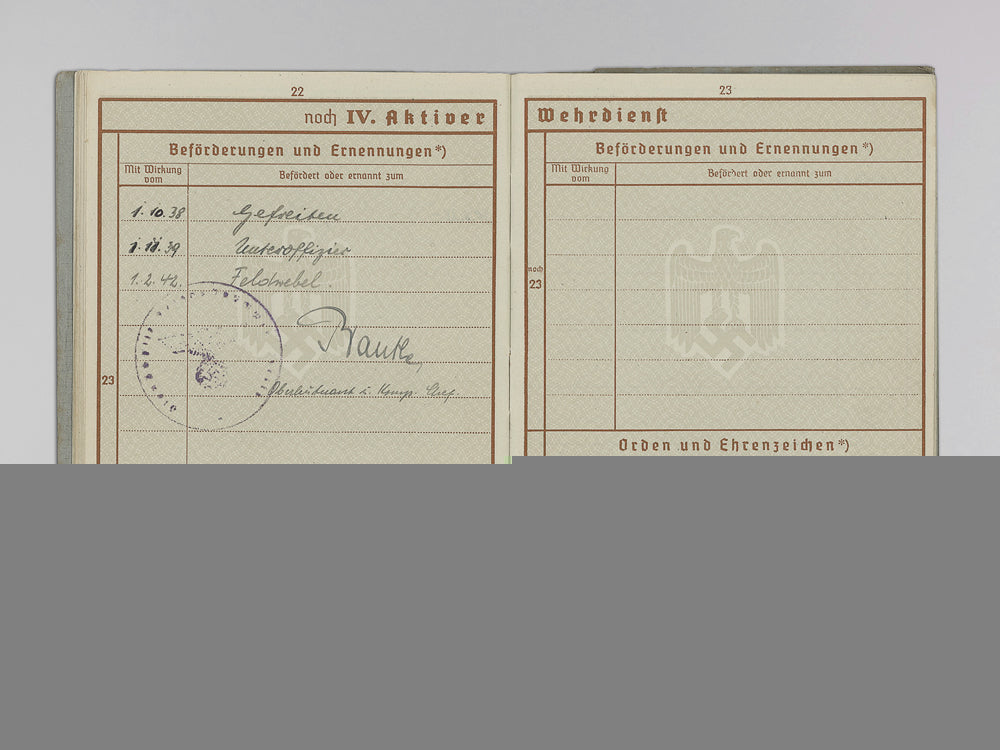 22
noch IV. Aktiver
Beförderungen und Ernennungen*)
Mit Wirkung vom
Befördert oder ernannt zum
1.10.38 Gefreiten
1.11.39 Unteroffizier
1.2.42. Feldwebel.
Oberleutnant u. Komp. Chef.
23
23
Wehrdienst
Beförderungen und Ernennungen*)
Mit Wirkung vom
Befördert oder ernannt zum
noch
23
Orden und Ehrenzeichen*)